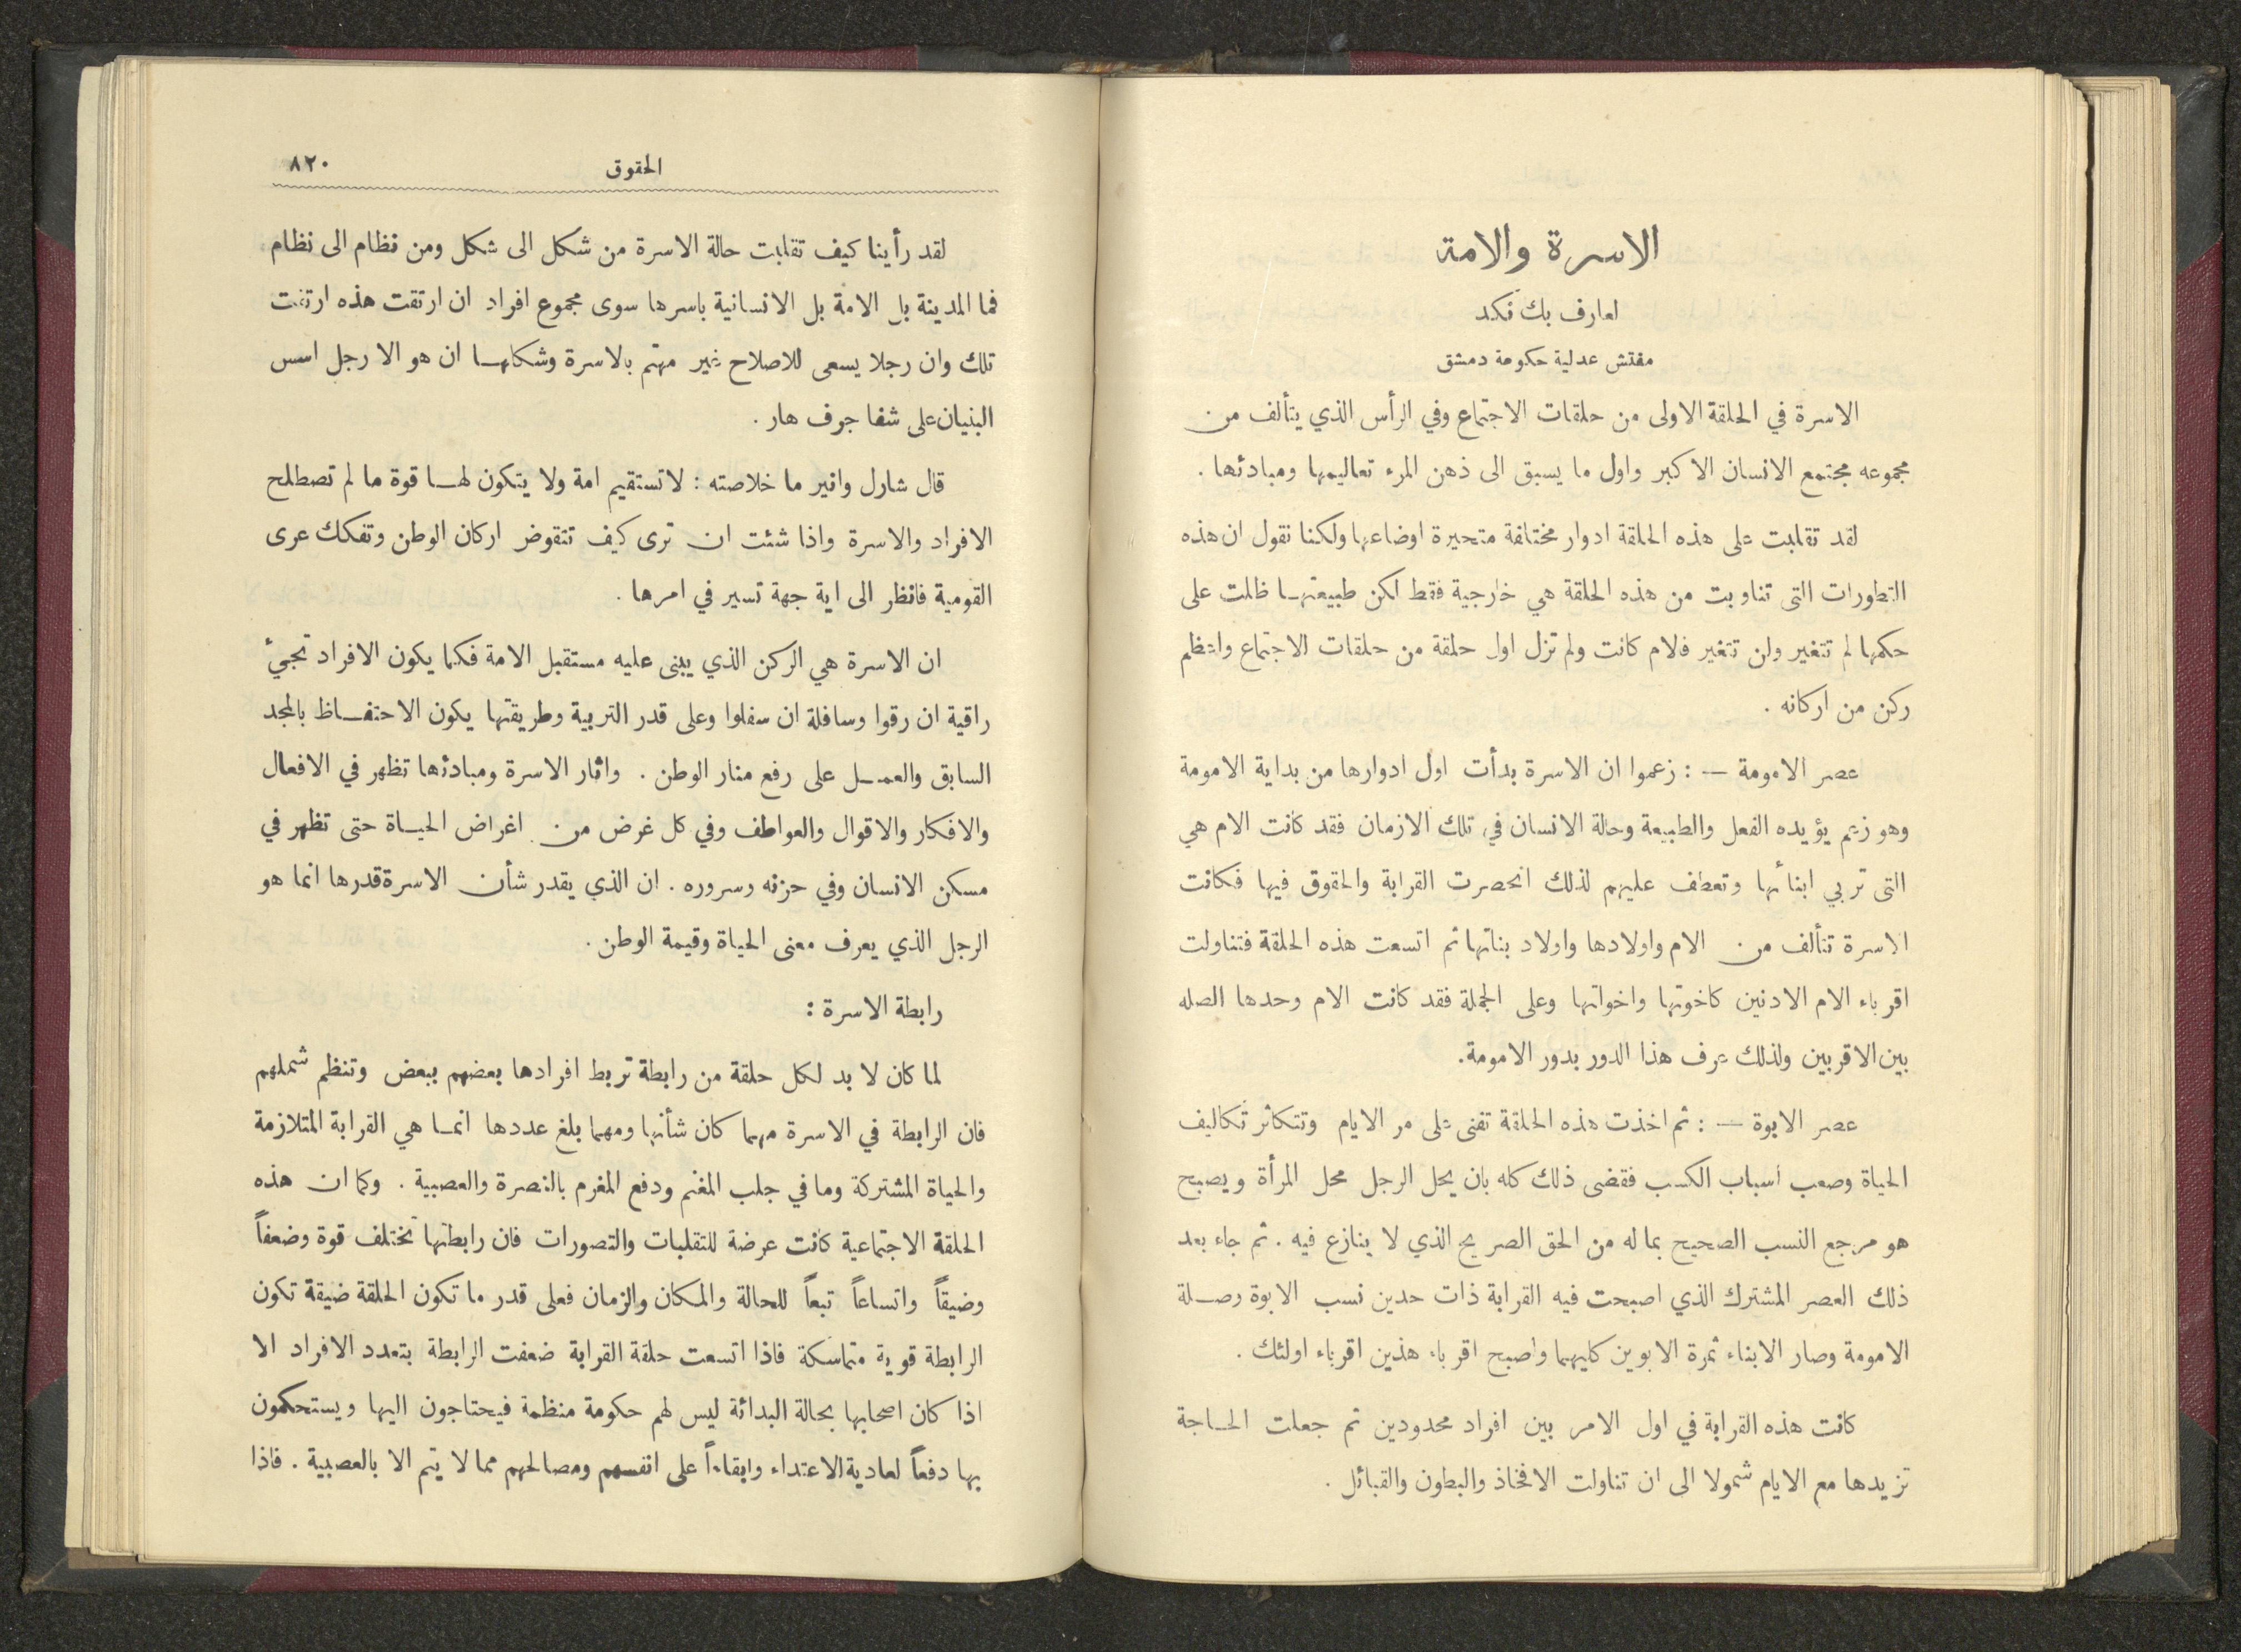 الاسرة والامة
لعارف بك نكد
مفتش عدلية حكومة دمشق
الاسرة في الحلقة الاولى من حلقات الاجتماع وفي الرأس الذي يتألف من
مجموعه مجتمع الانسان الاكبر واول ما يسبق الى ذهن المرء تعاليمها ومبادئها .
لقد تقلبت على هذه الحلقة ادوار مختلفة متحيرة اوضاعها ولكنا نقول ان هذه
التطورات التى تناوبت من هذه الحلقة هي خارجية فقط لكن طبيعتها ظلت على
حكمها لم تتغير ولن تتغير فالام كانت ولم تزل اول حلقة من حلقات الاجتماع واعظم
ركن من اركانه .
عصر الامومة — : زعموا ان الاسرة بدأت اول ادوارها من بداية الامومة
وهو زعم يؤيده الفعل والطبيعة وحالة الانسان في تلك الازمان فقد كانت الام هي
التى تربي ابنائها وتعطف عليهم لذلك انحصرت القرابة والحقوق فيها فكانت
الاسرة تتألف من الام واولادها واولاد بناتها ثم اتسعت هذه الحلقة فتناولت
اقرباء الام الادنين كاخوتها واخواتها وعلى الجملة فقد كانت الام وحدها الصله
بين الاقربين ولذلك عرف هذا الدور بدور الامومة.
عصر الابوة — : ثم اخذت هذه الحلقة تفنى على مر الايام وتتكاثر تكاليف
الحياة وصعب اسباب الكسب فقضى ذلك كله بان يحل الرجل محل المرأة ويصبح
هو مرجع النسب الصحيح بماله من الحق الصريح الذي لا ينازع فيه . ثم جاء بعد
ذلك العصر المشترك الذي اصبحت فيه القرابة ذات حدين نسب الابوة وصلة
الامومة وصار الابناء ثمرة الابوين كليهما واصبح اقرباء هذين اقرباء اولئك .
كانت هذه القرابة في اول الامر بين افراد محدودين ثم جعلت الحاجة
تزيدها مع الايام شمولا الى ان تناولت الافخاذ والبطون والقبائل .
الحقوق ٨٢٠
لقد رأينا كيف تقلبت حالة الاسرة من شكل الى شكل ومن نظام الى نظام
فما المدينة بل الامة بل الانسانية باسرها سوى مجموع افراد ان ارتقت هذه ارتقت
تلك وان رجلا يسعى للاصلاح غير مهتم بالاسرة وشكلها ان هو الا رجل اسس
البنيان على شفا جرف هار .
قال شارل واثير ما خلاصته : لا تستقيم امة ولا يتكون لها قوة ما لم تصطلح
الافراد والاسرة واذا شئت ان ترى كيف تتقوض اركان الوطن وتفكك عرى
القومية فانظر الى اية جهة تسير في امرها .
ان الاسرة هي الركن الذي يبنى عليه مستقبل الامة فكما يكون الافراد تجيء
راقية ان رقوا وسافلة ان سفلوا وعلى قدر التربية وطريقتها يكون الاحتفاظ بالمجد
السابق والعمل على رفع منار الوطن . واثار الاسرة ومبادئها تظهر في الافعال
والافكار والاقوال والعواطف وفي كل غرض من اغراض الحياة حتى تظهر في
مسكن الانسان وفي حزنه وسروره . ان الذي يقدر شأن الاسرة قدرها انما هو
الرجل الذي يعرف معنى الحياة وقيمة الوطن .
رابطة الاسرة :
لما كان لا بد لكل حلقة من رابطة تربط افرادها بعضهم ببعض وتنظم شملهم
فان الرابطة في الاسرة مهما كان شأنها ومهما بلغ عددها انما هي القرابة المتلازمة
والحياة المشتركة وما في جلب المغنم ودفع المغرم بالنصرة والعصبية . وكما ان هذه
الحلقة الاجتماعية كانت عرضة للتقلبات والتصورات فان رابطتها تختلف قوة وضعفاً
وضيقاً واتساعاً تبعاً للحالة والمكان والزمان فعلى قدر ما تكون الحلقة ضيقة تكون
الرابطة قوية متماسكة فاذا اتسعت حلقة القرابة ضعفت الرابطة بتعدد الافراد الا
اذا كان اصحابها بحالة البدائة ليس لهم حكومة منظمة فيحتاجون اليها ويستحكمون
بها دفعاً لعادية الاعتداء وابقاءاً على انفسهم ومصالحهم مما لا يتم الا بالعصبية . فاذا